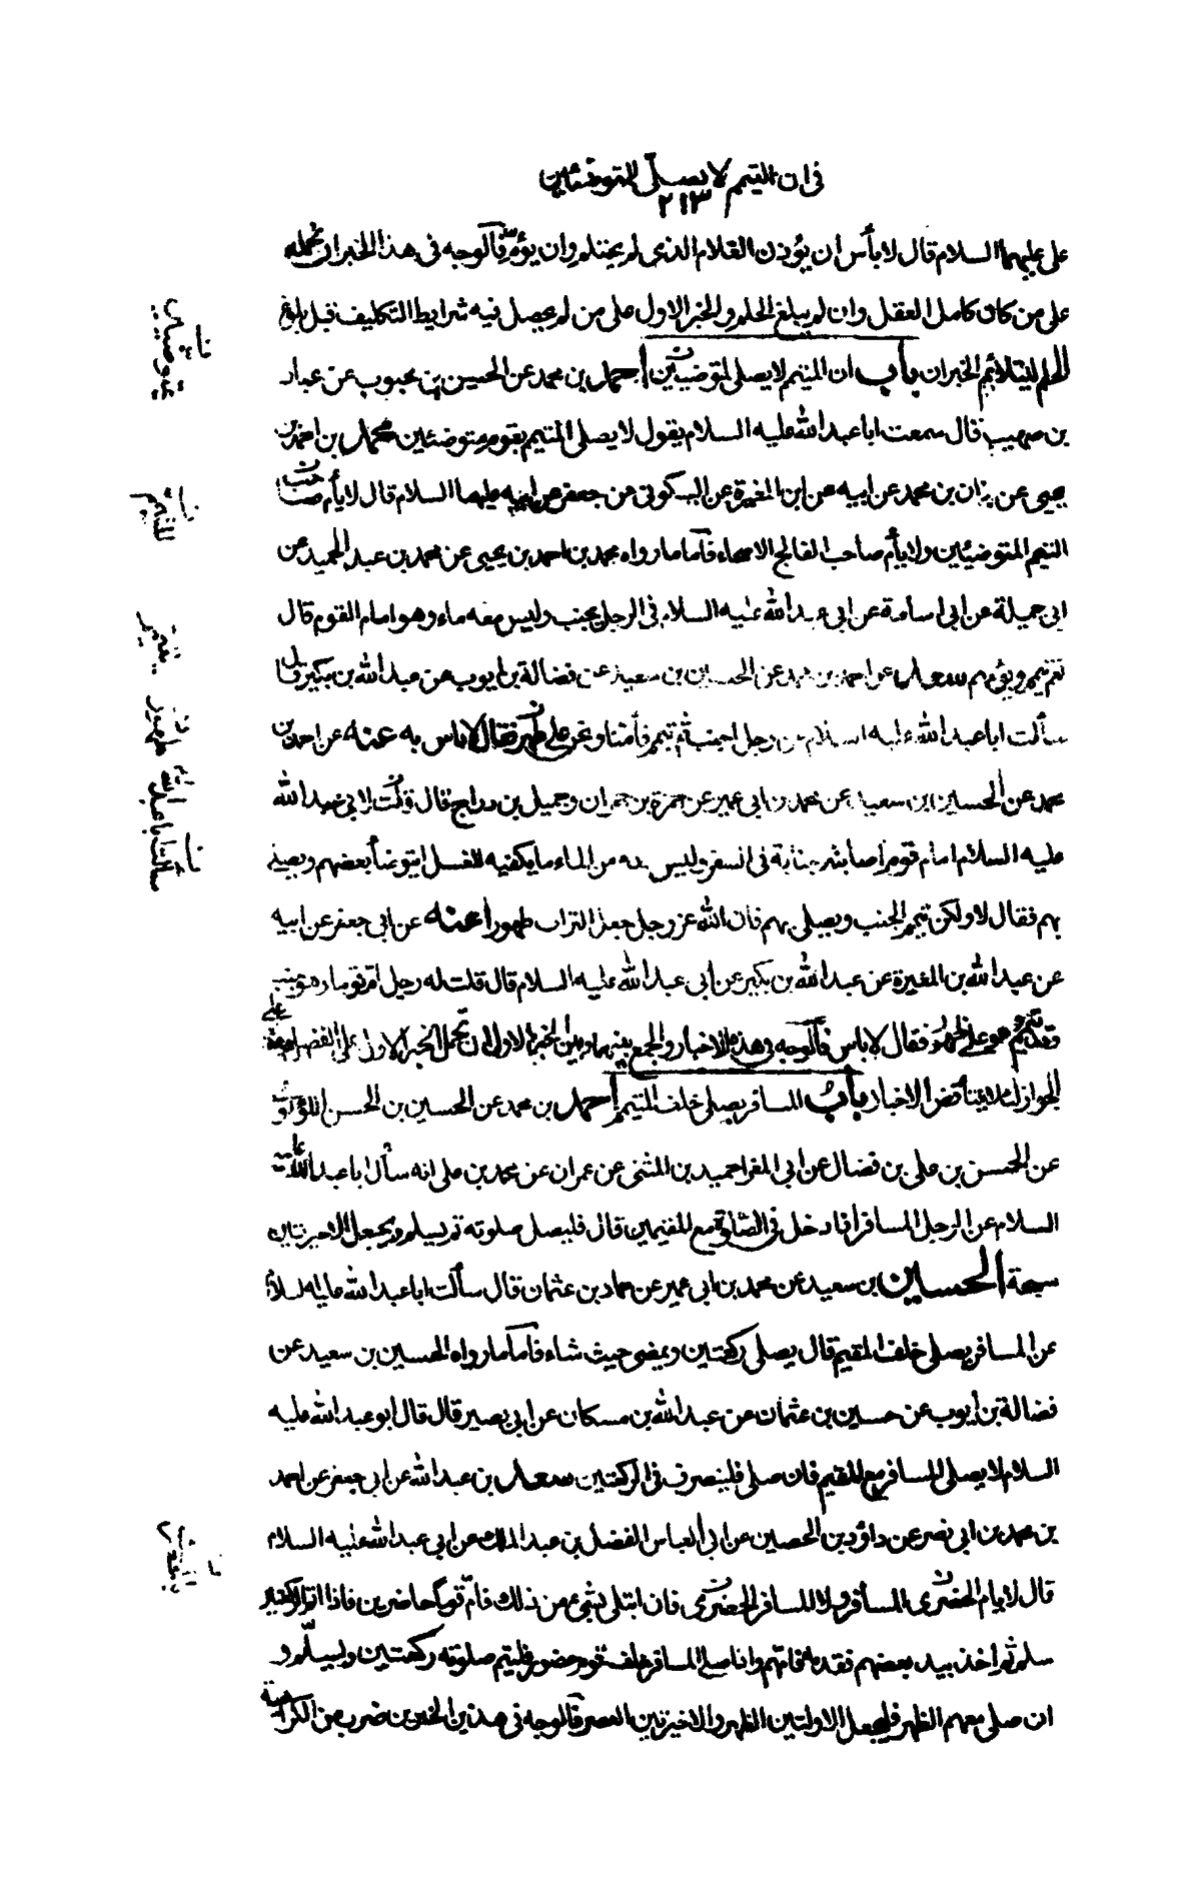 في ان المتيمم لا يصلى المتوضئين
٢١٣
على عليهما السلام قال لا بأس ان يؤذن الغلام الذى لم يحتلم وان يؤم فالوجه فى هذا الخبر ان نحمله
على من كان كامل العقل وان لم يبلغ الحلم والخبر الاول على من لم يحصل فيه شرايط التكليف قبل بلوغ
الحلم ليتلائم الخبران باب ان المتيمم لا يصلى لمتوضيين احمد بن محمد عن الحسين بن محبوب عن عباد
بن صهيب قال سمعت ابا عبد الله عليه السلام يقول لا يصلى المتيمم بقوم متوضئين محمد بن احمد بن
يحيى عن بنان بن محمد عن ابيه عن ابن المغيرة عن السكونى عن جعفر عن ابيه عليهما السلام قال لا يأم صاحب
التيمم المتوضيئين ولا يأم صاحب الفالج الاصحاء فاما ما رواه محمد بن احمد بن يحيى عن محمد بن عبد الحميد عن
ابى جميلة عن ابى اسامة عن ابى عبد الله عليه السلام فى الرجل يجنب وليس معه ماء وهو امام القوم قال
نعم تيمم ويؤمهم سعد عن احمد بن محمد عن الحسين بن سعيد عن فضالة بن ايوب عن عبد الله بن بكير قال
سألت ابا عبد الله عليه السلام عن رجل اجنب ثم تيمم فأمنا ونحن على طهر فقال لا باس به عنه عن احمد بن
محمد عن الحسين بن سعيد عن محمد بن ابى عمير عن حمزة بن حمران وجميل بن دراج قال قلت لابى عبد الله
عليه السلام امام قوم اصابته جنابة فى السفر وليس معه من الماء ما يكفيه للغسل ايتوضأ بعضهم ويصلى
بهم فقال لا ولكن تيمم الجنب ويصلى بهم فان الله عز وجل جعل التراب طهورا عنه عن ابى جعفر عن ابيه
عن عبد الله بن المغيرة عن عبد الله بن بكير عن ابى عبد الله عليه السلام قال قلت له رجل ام قوما وهو جنب
وقد تيمم وهم على طهور فقال لا باس فالوجه فى هذه الاخبار والجمع بينها وبين الخبر الاول ان نحمل الخبر الاول على الفضل وهذه على
الجواز لئلا يتناقض الاخبار باب المسافر يصلى خلف المقيم احمد بن محمد عن الحسين بن الحسن اللؤلؤى
عن الحسن بن على بن فضال عن ابى المغرا حميد بن المثنى عن عمران عن محمد بن على انه سأل ابا عبد الله عليه
السلام عن الرجل المسافر اذا دخل فى الصلوة مع المقيمين قال فليصل صلوته ثم يسلم ويجعل الاخيرتين
سبحة الحسين بن سعيد عن محمد بن ابى عمير عن حماد بن عثمان قال سألت ابا عبد الله عليه السلام
عن المسافر يصلى خلف المقيم قال يصلى ركعتين ويمضى حيث شاء فاما ما رواه الحسين بن سعيد عن
فضالة بن أيوب عن حسين بن عثمان عن عبد الله بن مسكان عن ابى بصير قال قال ابو عبد الله عليه
السلام لا يصلى المسافر مع المقيم فان صلى فلينصرف فى الركعتين سعد بن عبد الله عن ابى جعفر عن احمد
بن محمد بن ابى نصر عن داؤد بن الحصين عن ابى العباس الفضل بن عبد الملك عن ابى عبد الله عليه السلام
قال لا يام الحضرى المسافر ولا المسافر الحضرى فان ابتلى بشئ من ذلك فام قوما حاضرين فاذا اتم الركعتين
سلم ثم اخذ بيد بعضهم فقدمه فامهم واذا صلى المسافر خلف قوم حضور فليتم صلوته ركعتين ويسلم و
ان صلى معهم الظهر فليجعل الاولتين الظهر والاخيرتين العصر فالوجه فى هذين الخبرين ضرب من الكراهية
متوضيين
للتيمم
طهور
سألت ابا عبد الله